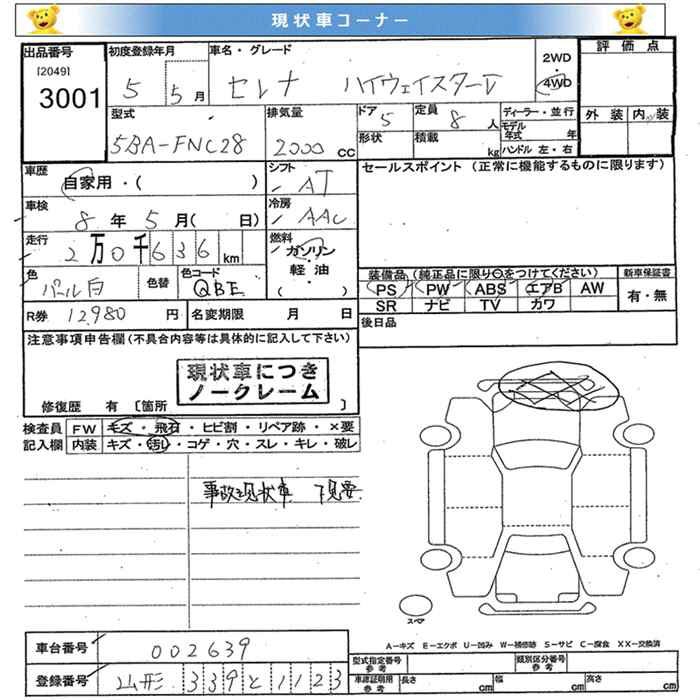 現状車コーナー
出品番号 初度登録年月 車名・グレード 2WD・4WD 評価点
[2049] 3001 5 5月 セレナ ハイウェイスターV 外装 内装
型式 排気量 ドア 定員 ディーラー・並行
5BA-FNC28 2000 CC 5 8人 モデル年式 年
形状 積載 kg ハンドル 左・右
車歴 シフト セールスポイント (正常に機能するものに限ります)
自家用・( ) AT
車検 冷房
8年5月( 日) AAC
走行 燃料
2万0千636km ガソリン・軽油・( )
色 色替 色コード 装備品(純正品に限り○をつけてください) 新車保証書
パール白 QBE PS PW ABS エアB AW 有・無
SR ナビ TV カワ
R券 12980円 名変期限 月 日 後日品
注意事項申告欄(不具合内容等は具体的に記入して下さい)
現状車につき
ノークレーム
修復歴 有 [箇所 ]
検査員 FW キズ・飛石・ヒビ割・リペア跡・×要
記入欄 内装 キズ・汚れ・コゲ・穴・スレ・キレ・破レ
事故現状車 下見要
スペア
A-キズ E-エクボ U-凹み W-補修跡 S-サビ C-腐食 XX-交換済
車台番号 002639
型式指定番号 参考 類別区分番号 参考
登録番号 山形 339 と 1123
車庫証明用 参考 長さ cm 幅 cm 高さ cm